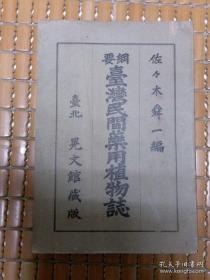 佐々木舜一編
綱要
臺灣民間藥用植物誌
臺北 晃文館藏版